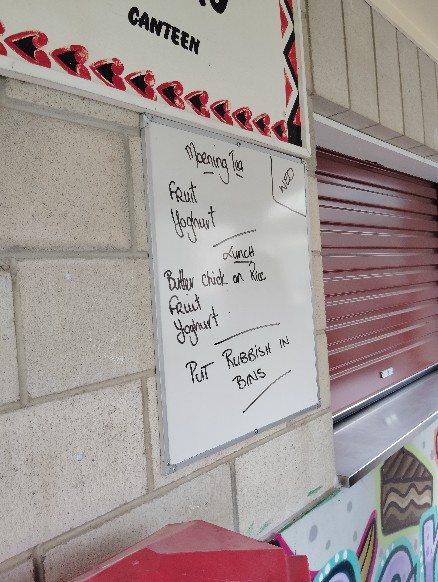 CANTEEN
Morning Tea
WED
Fruit
Yoghurt
Lunch
Butter Chick on Rice
Fruit
Yoghurt
PUT RUBBISH IN
BINS